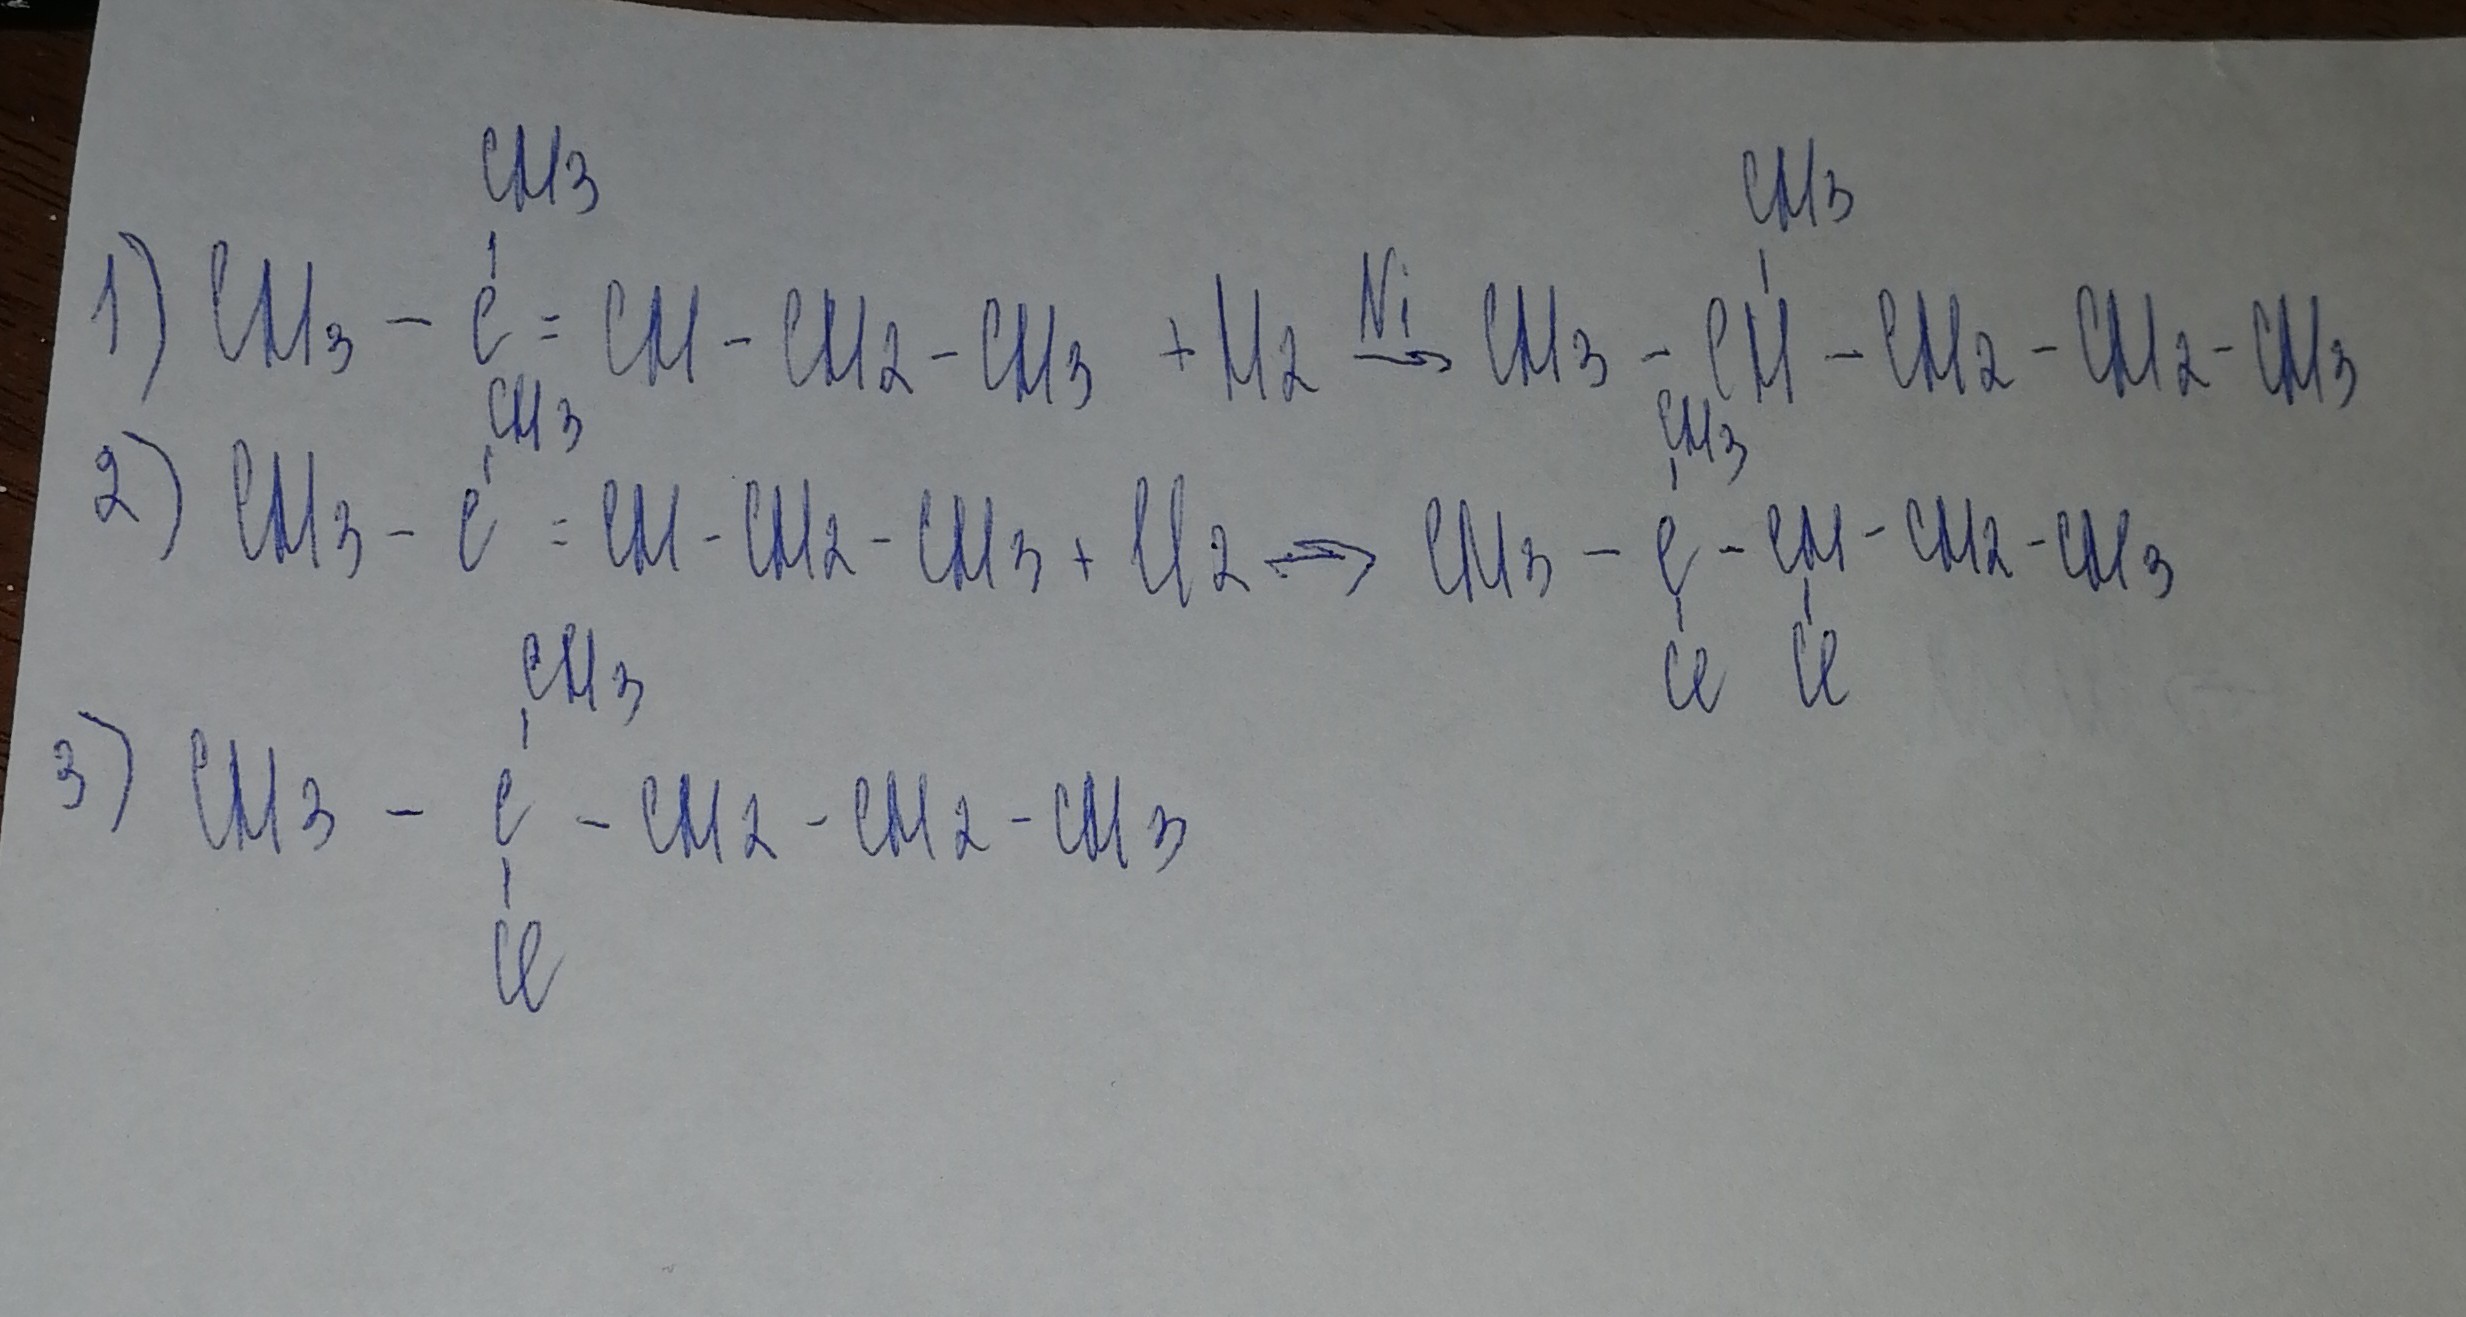 CH3 CH3
1) CH3 - C = CH - CH2 - CH3 + H2 Ni → CH3 - CH - CH2 - CH2 - CH3
CH3 CH3
2) CH3 - C = CH - CH2 - CH3 + Cl2 → CH3 - C - CH - CH2 - CH3
Cl Cl
CH3
3) CH3 - C - CH2 - CH2 - CH3
Cl